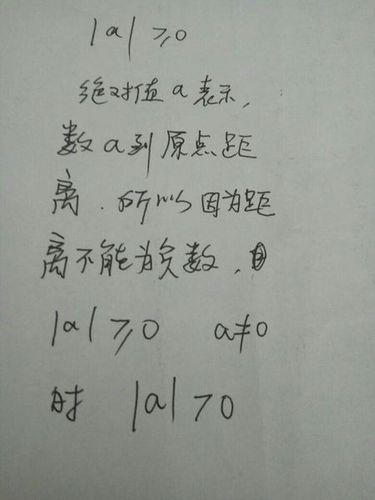 |a|≥0
绝对值a表示,
数a到原点距
离.所以因为距
离不能为负数,
|a|≥0 a≠0
时 |a|>0